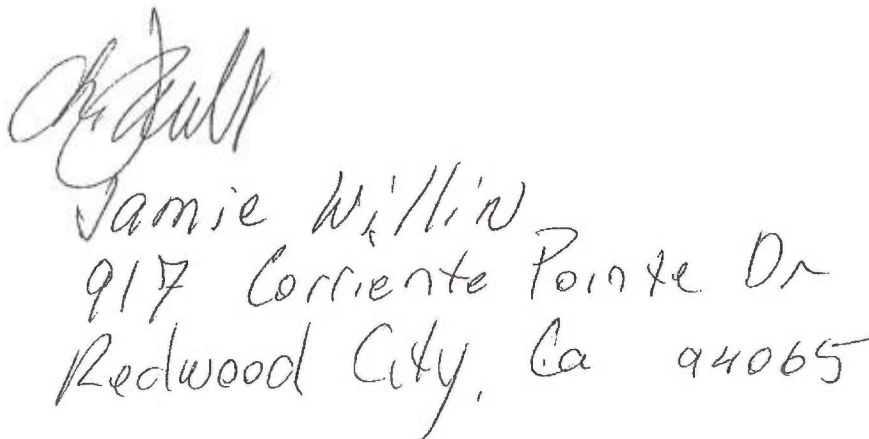 Jamie Willin
917 Corriente Pointe Dr
Redwood City, Ca 94065